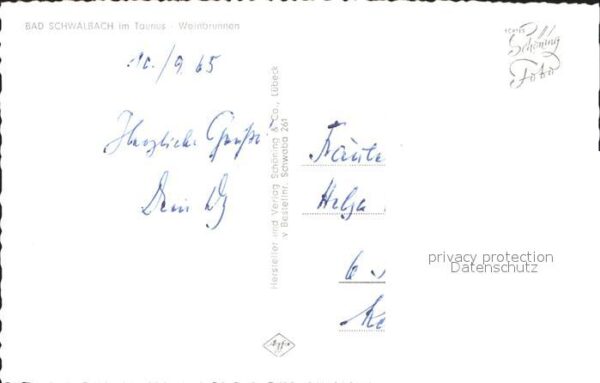 BAD SCHWALBACH im Taunus - Weinbrunnen
ECHTES
Schöning
Foto
10./9.65
Herzliche Grüße!
Dein
Hersteller und Verlag Schöning & Co., Lübeck
Bestellnr. Schwaba 261
Fräule
Helga
6
Ke
privacy protection
Datenschutz
Agfa